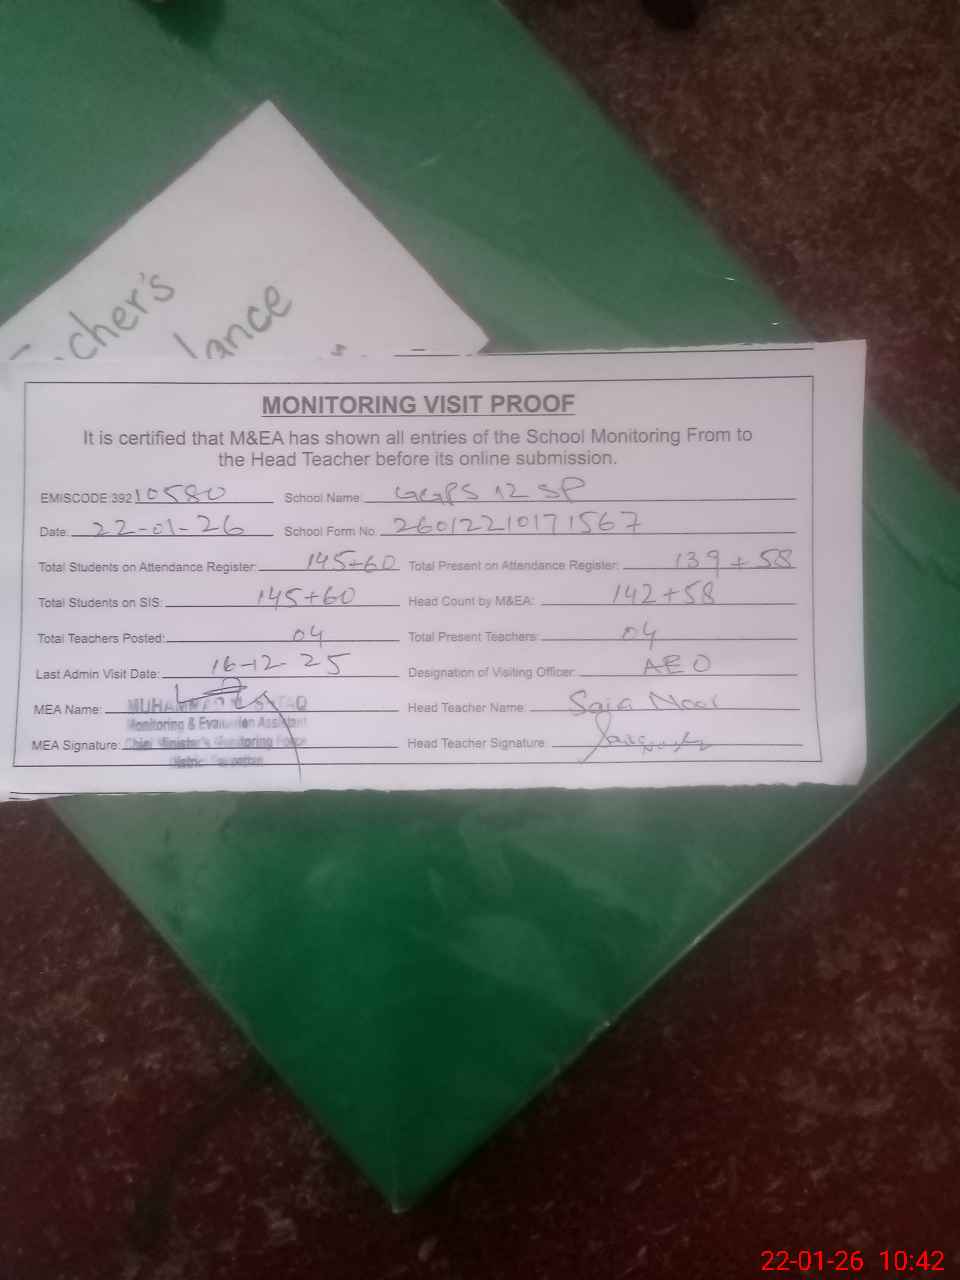 cher's
lance
MONITORING VISIT PROOF
It is certified that M&EA has shown all entries of the School Monitoring From to
the Head Teacher before its online submission.
EMISCODE:392 10580 School Name: GGPS 12 SP
Date: 22-01-26 School Form No. 26012210171567
Total Students on Attendance Register: 145+60 Total Present on Attendance Register: 139 + 58
Total Students on SIS: 145+60 Head Count by M&EA: 142+58
Total Teachers Posted: 04 Total Present Teachers: 04
Last Admin Visit Date: 16-12-25 Designation of Visiting Officer: AEO
MEA Name: MUHAMMAD Head Teacher Name: Noor
Monitoring & Evaluation Assistant
MEA Signature: Chief Minister's Monitoring Force Head Teacher Signature:
22-01-26 10:42